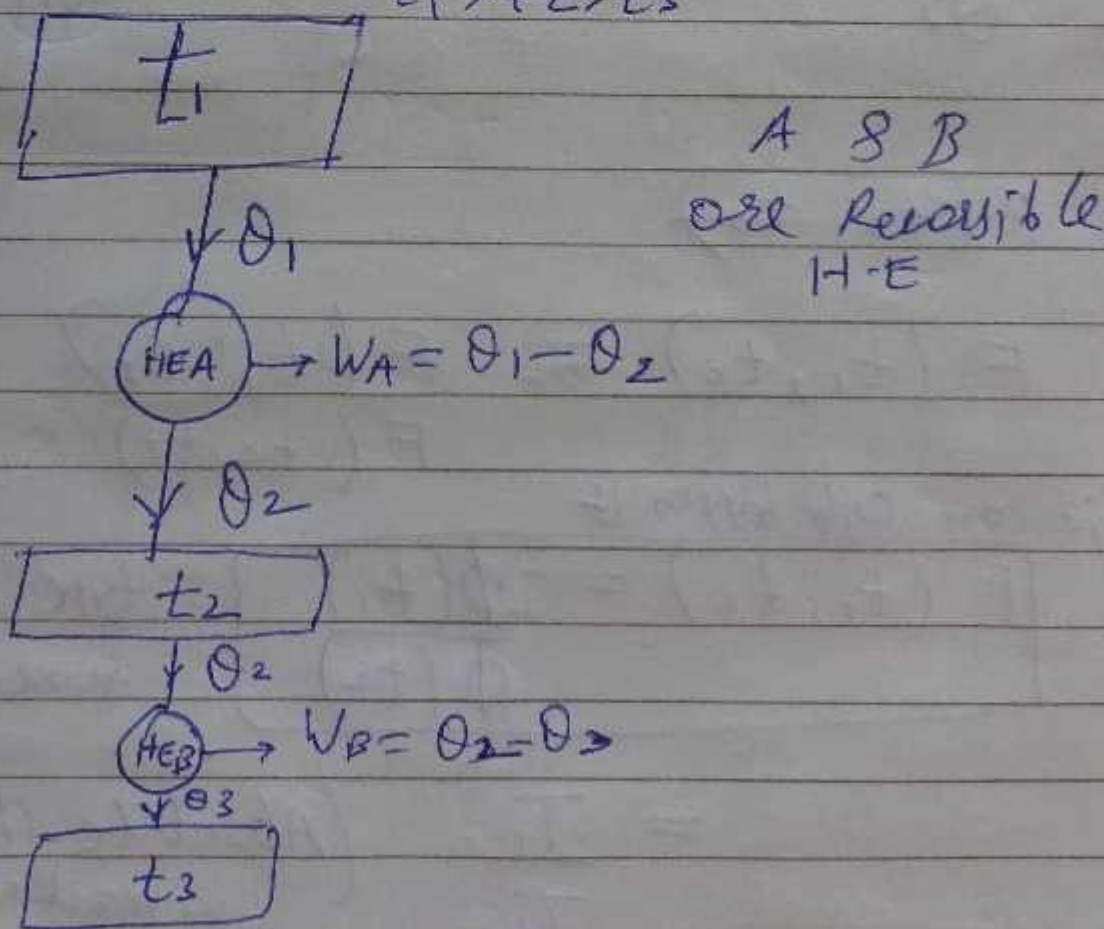 t1
A & B
are Reversible
H-E
θ1
HEA → WA = θ1 - θ2
θ2
t2
θ2
HEB → WB = θ2 - θ3
θ3
t3